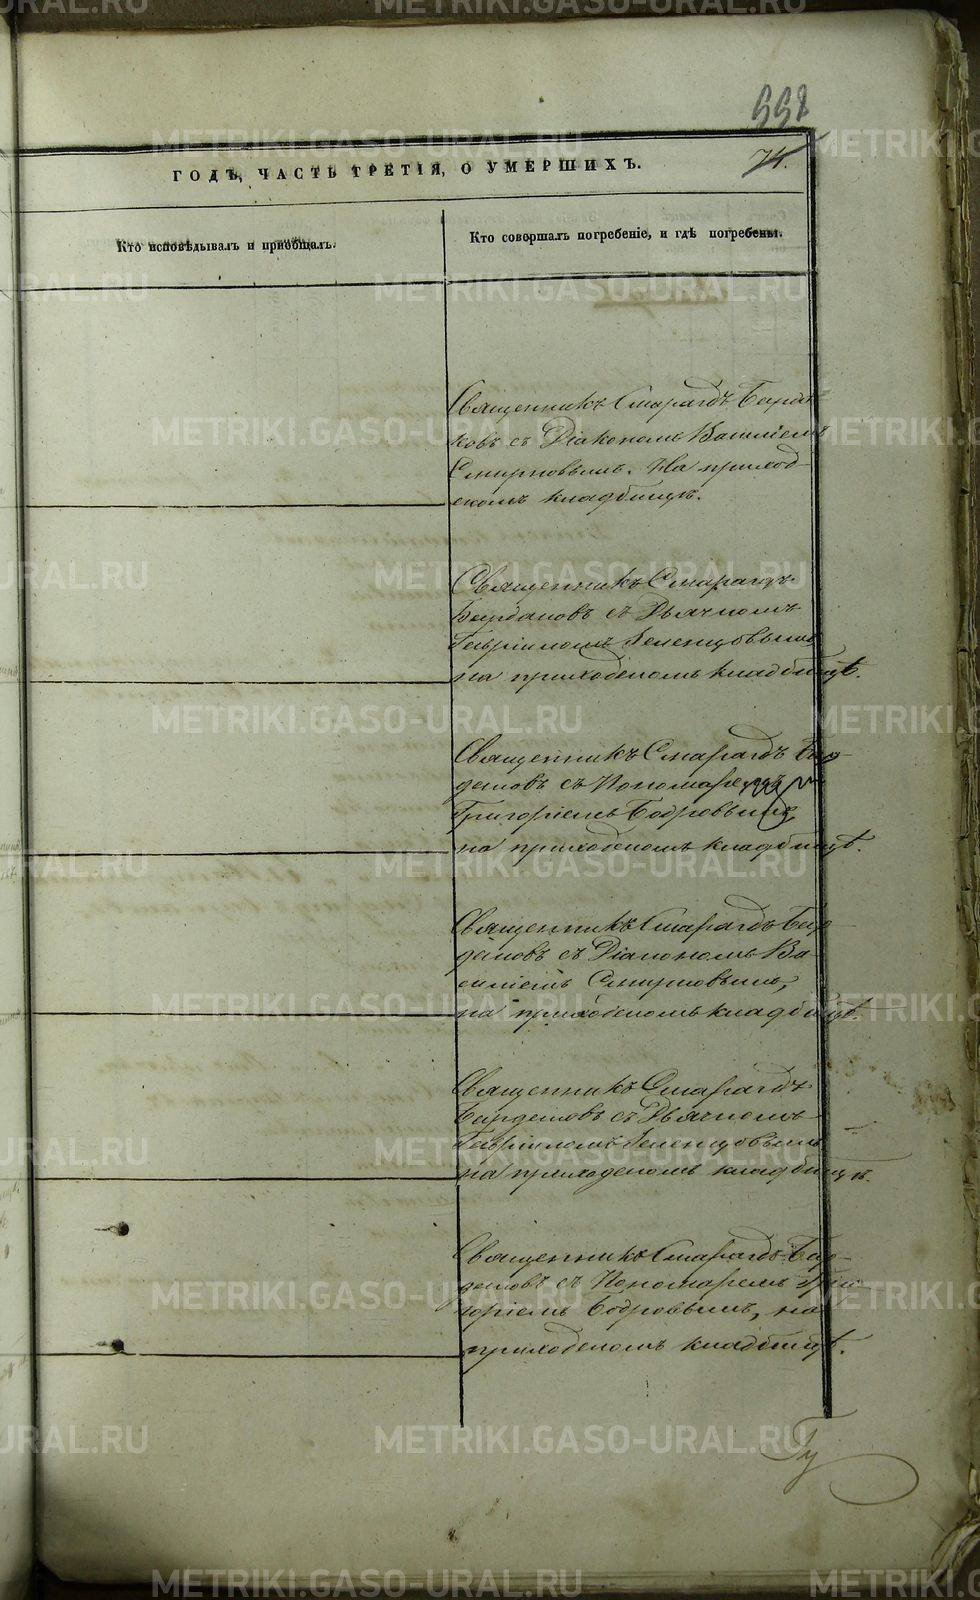 558
74.
ГОДЪ, ЧАСТЬ ТРЕТІЯ, О УМЕРШИХЪ.
Кто исповѣдывалъ и пріобщалъ.
Кто совершалъ погребеніе, и гдѣ погребены.
Священникъ Смарагдъ
ковъ съ Діакономъ Василіемъ
Смирновымъ. На приход-
скомъ кладбищѣ.
Священникъ Смарагдъ
съ Дьячкомъ
Гавріиломъ
на приходскомъ кладбищѣ.
Священникъ Смарагдъ Бар-
дашовъ съ Пономаремъ
Григоріемъ Бодровымъ
на приходскомъ кладбищѣ.
Священникъ Смарагдъ Бар
дашовъ съ Діакономъ Ва-
силіемъ Смирновымъ,
на приходскомъ кладбищѣ.
Священникъ Смарагдъ
Бардашовъ съ Дьячкомъ
Гавріиломъ
на приходскомъ кладбищѣ.
Священникъ Смарагдъ Бар-
дашовъ съ Пономаремъ Гри
горіемъ Бодровымъ, на
приходскомъ кладбищѣ.
METRIKI.GASO-URAL.RU